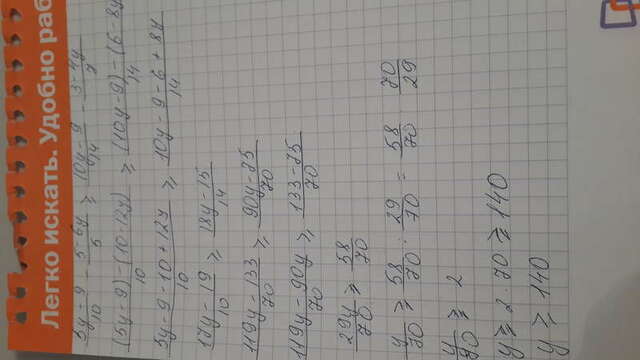 Легко искать. Удобно раб
(5y-9)/10 - (5-6y)/5 ≥ (10y-9)/14 - (3-4y)/7
((5y-9)-(10-12y))/10 ≥ ((10y-9)-(6-8y))/14
(5y-9-10+12y)/10 ≥ (10y-9-6+8y)/14
(17y-19)/10 ≥ (18y-15)/14
(119y-133)/70 ≥ (90y-75)/70
(119y-90y)/70 ≥ (133-75)/70
29y/70 ≥ 58/70
y/70 ≥ 58/70 : 29/70 = 58/70 70/29
y/70 ≥ 2
y ≥ 2·70 ≥ 140
y ≥ 140